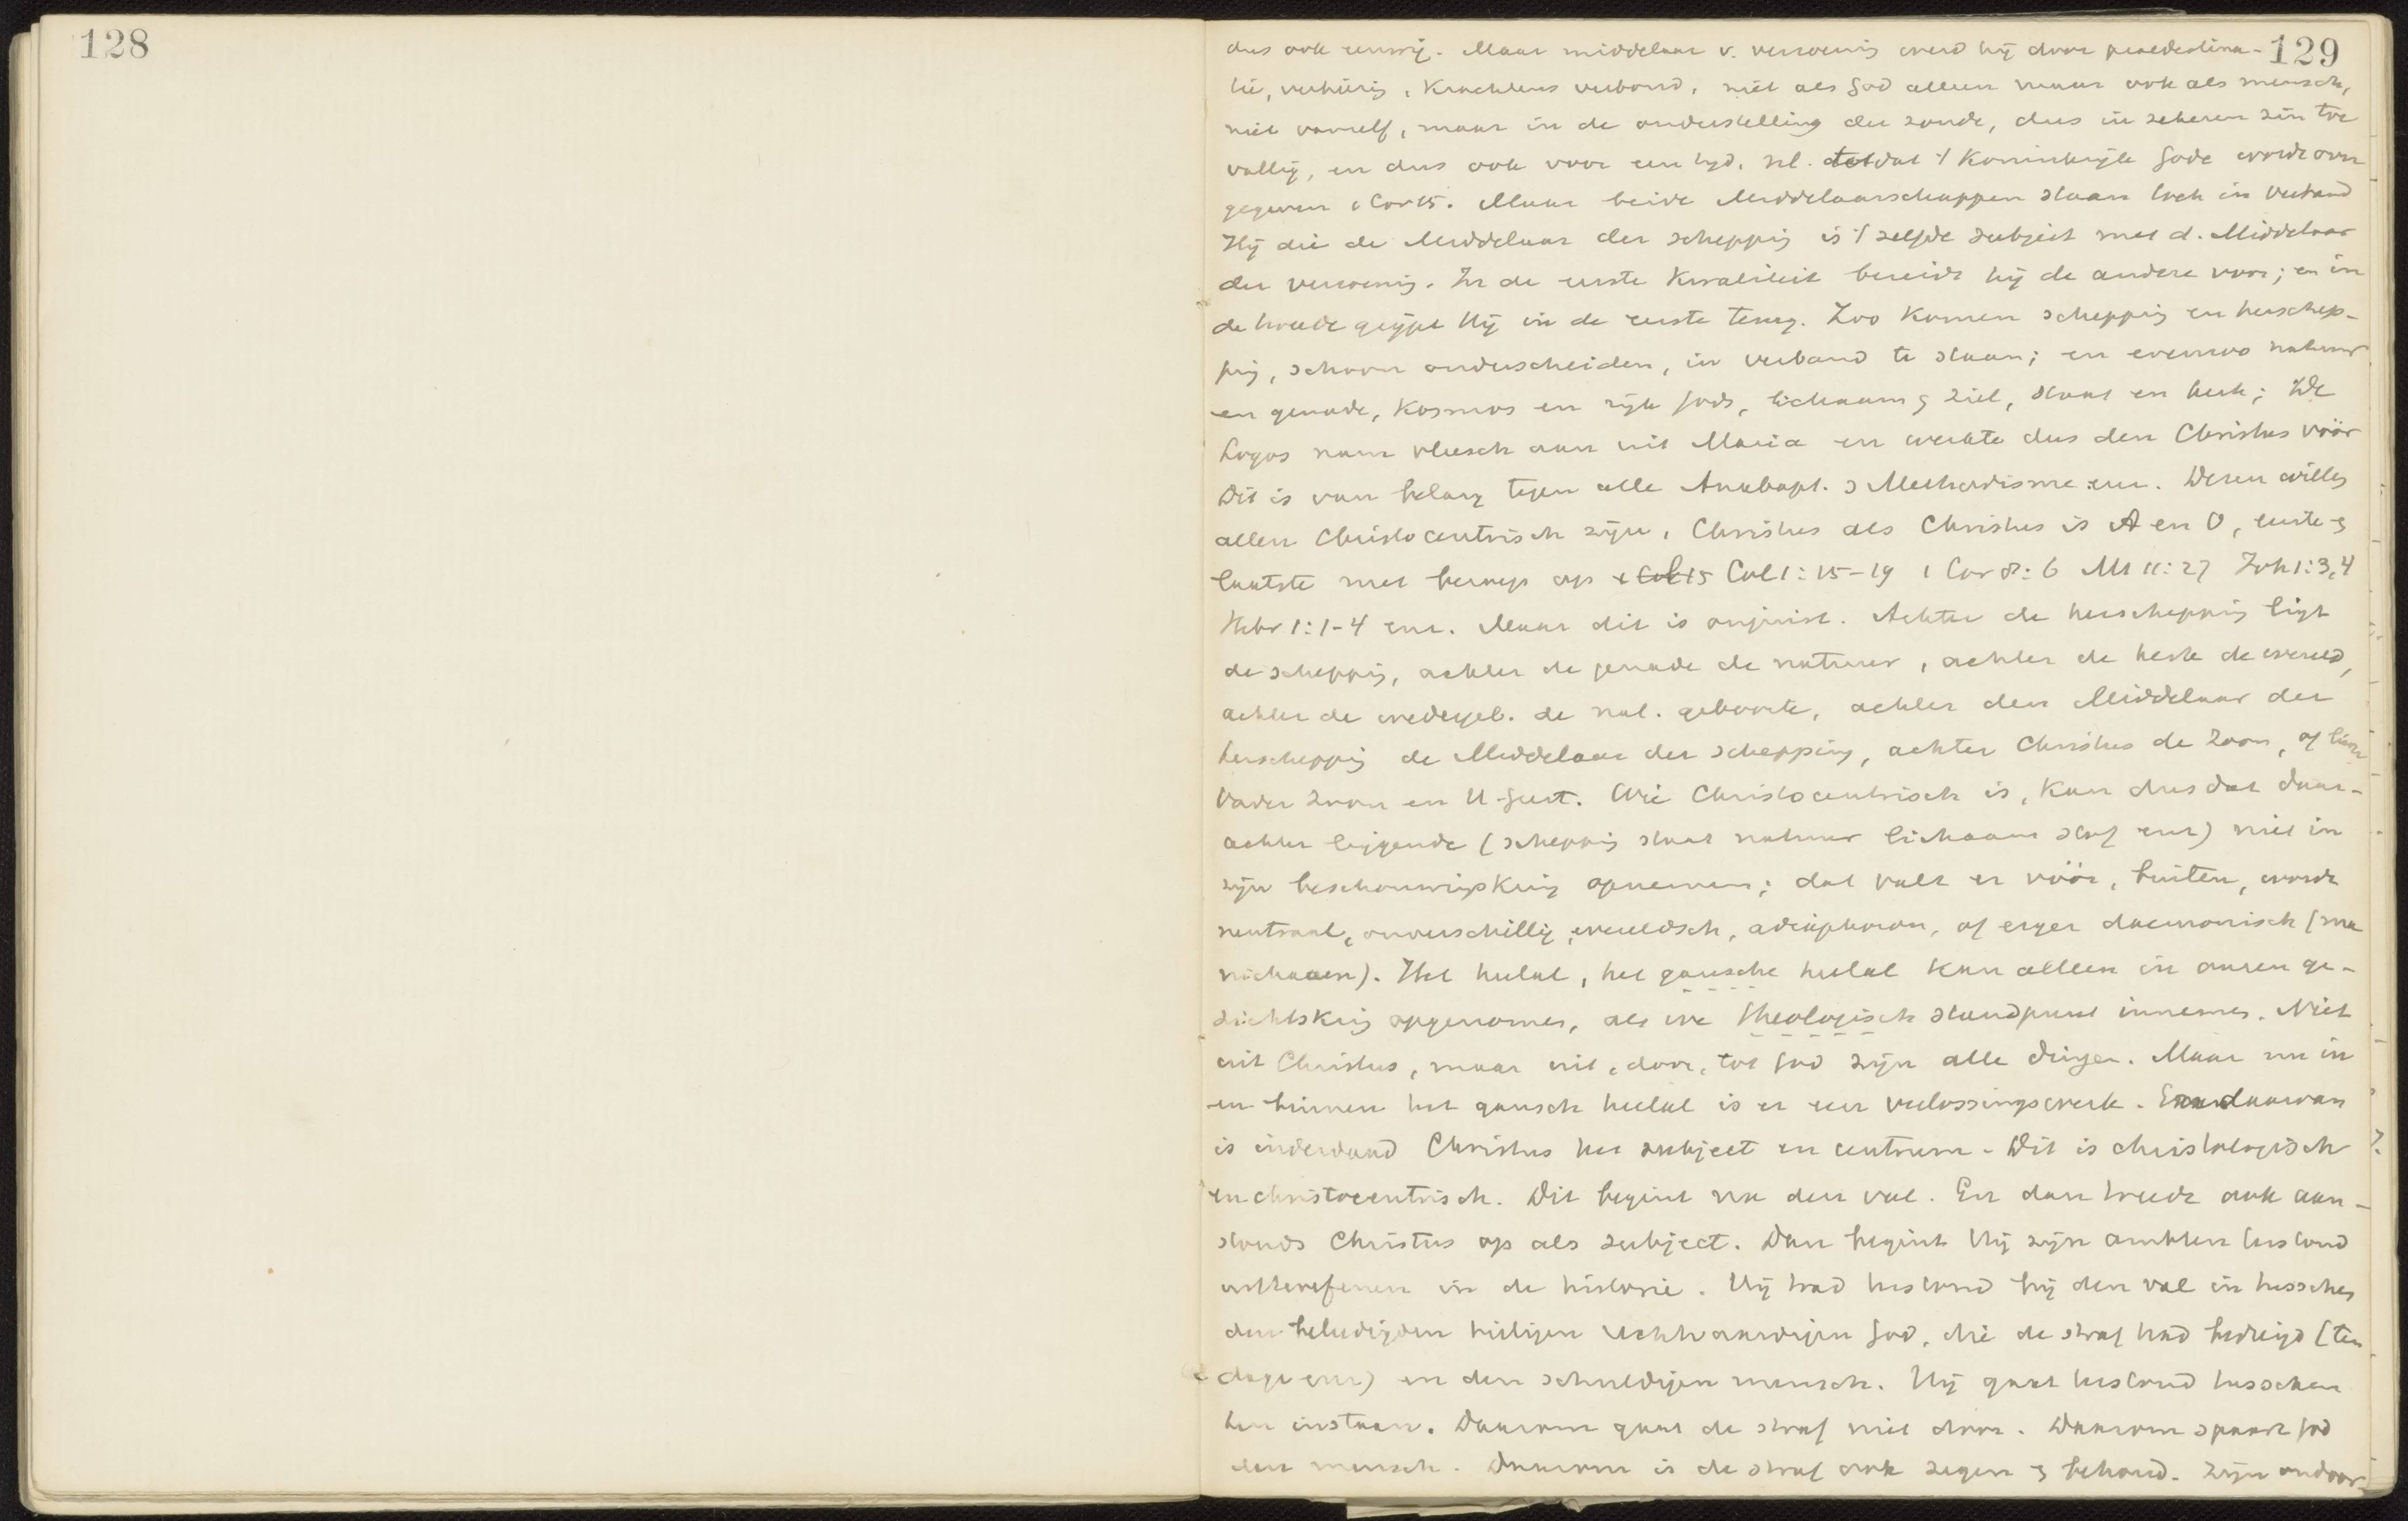 128
129
dus ook eeuwig. Maar middelaar v. verzoenig werd hij door praedestina-
tie, verkiezig, krachtens verbond, niet als God alleen maar ook als mensch,
niet vanzelf, maar in de onderstelling der zonde, dus in zekeren zin toe
vallig, en dus ook voor een tijd, nl. totdat 't Koninkrijk Gode worde over
gegeven 1 Cor 15. Maar beide Middelaarschappen staan toch in verband
Hij die de Middelaar der scheppig is 't zelfde subject met d. Middelaar
der verzoenig. In de eerste kwaliteit bereidt hij de andere voor; en in
de tweede grijpt Hij in de eerste terug. Zoo komen scheppig en herschep-
pig, schoon onderscheiden, in verband te staan; en evenzoo natuur
en genade, Kosmos en rijk Gods, lichaam & ziel, staat en kerk; De
Logos nam vleesch aan uit Maria en werkte dus den Christus vóór
Dit is van belang tegen alle Anabapt. & Methodisme enz. Dezen willen
allen Christocentrisch zijn, Christus als Christus is A en O, eerste &
laatste met beroep op 1 Col 15 Col 1:15-19 1 Cor 8:6 Mt 11:27 Joh 1:3,4
Hebr 1:1-4 enz. Maar dit is onjuist. Achter de herscheppig ligt
de scheppig, achter de genade de natuur, achter de kerk de wereld,
achter de wedergeb. de nat. geboorte, achter den Middelaar der
herscheppig de Middelaar der schepping, achter Christus de Zoon, of liever
Vader Zoon en H. Geest. Wie Christocentrisch is, kan dus dat daar-
achter liggende (scheppig staat natuur lichaam stof enz) niet in
zijn beschouwingskrig opnemen; dat valt er vóór, buiten, wordt
neutraal, onverschillig, wereldsch, adiaphoron, of erger daemonisch (ma
nichaeën). Het heelal, het gansche heelal kan alleen in onzen ge-
zichtskrig opgenomen, als we theologisch standpunt innemen. Niet
uit Christus, maar uit, door, tot God zijn alle dingen. Maar nu in
en binnen het gansch heelal is er een verlossingswerk. En daarvan
is inderdaad Christus het subject en centrum. Dit is christologisch
en christocentrisch. Dit begint na den val. En dan treedt ook aan-
stonds Christus op als subject. Dan begint Hij zijn ambten terstond
uitteoefenen in de historie. Hij trad terstond bij den val in tusschen
den beleedigden heiligen rechtvaardigen God, die de straf had bedreigd (ten
dage enz) en den schuldigen mensch. Hij gaat terstond tusschen
hen instaan. Daarom gaat de straf niet door. Daarom spaart God
den mensch. Daarom is de straf ook zegen & behoud. Zijn ondoor-